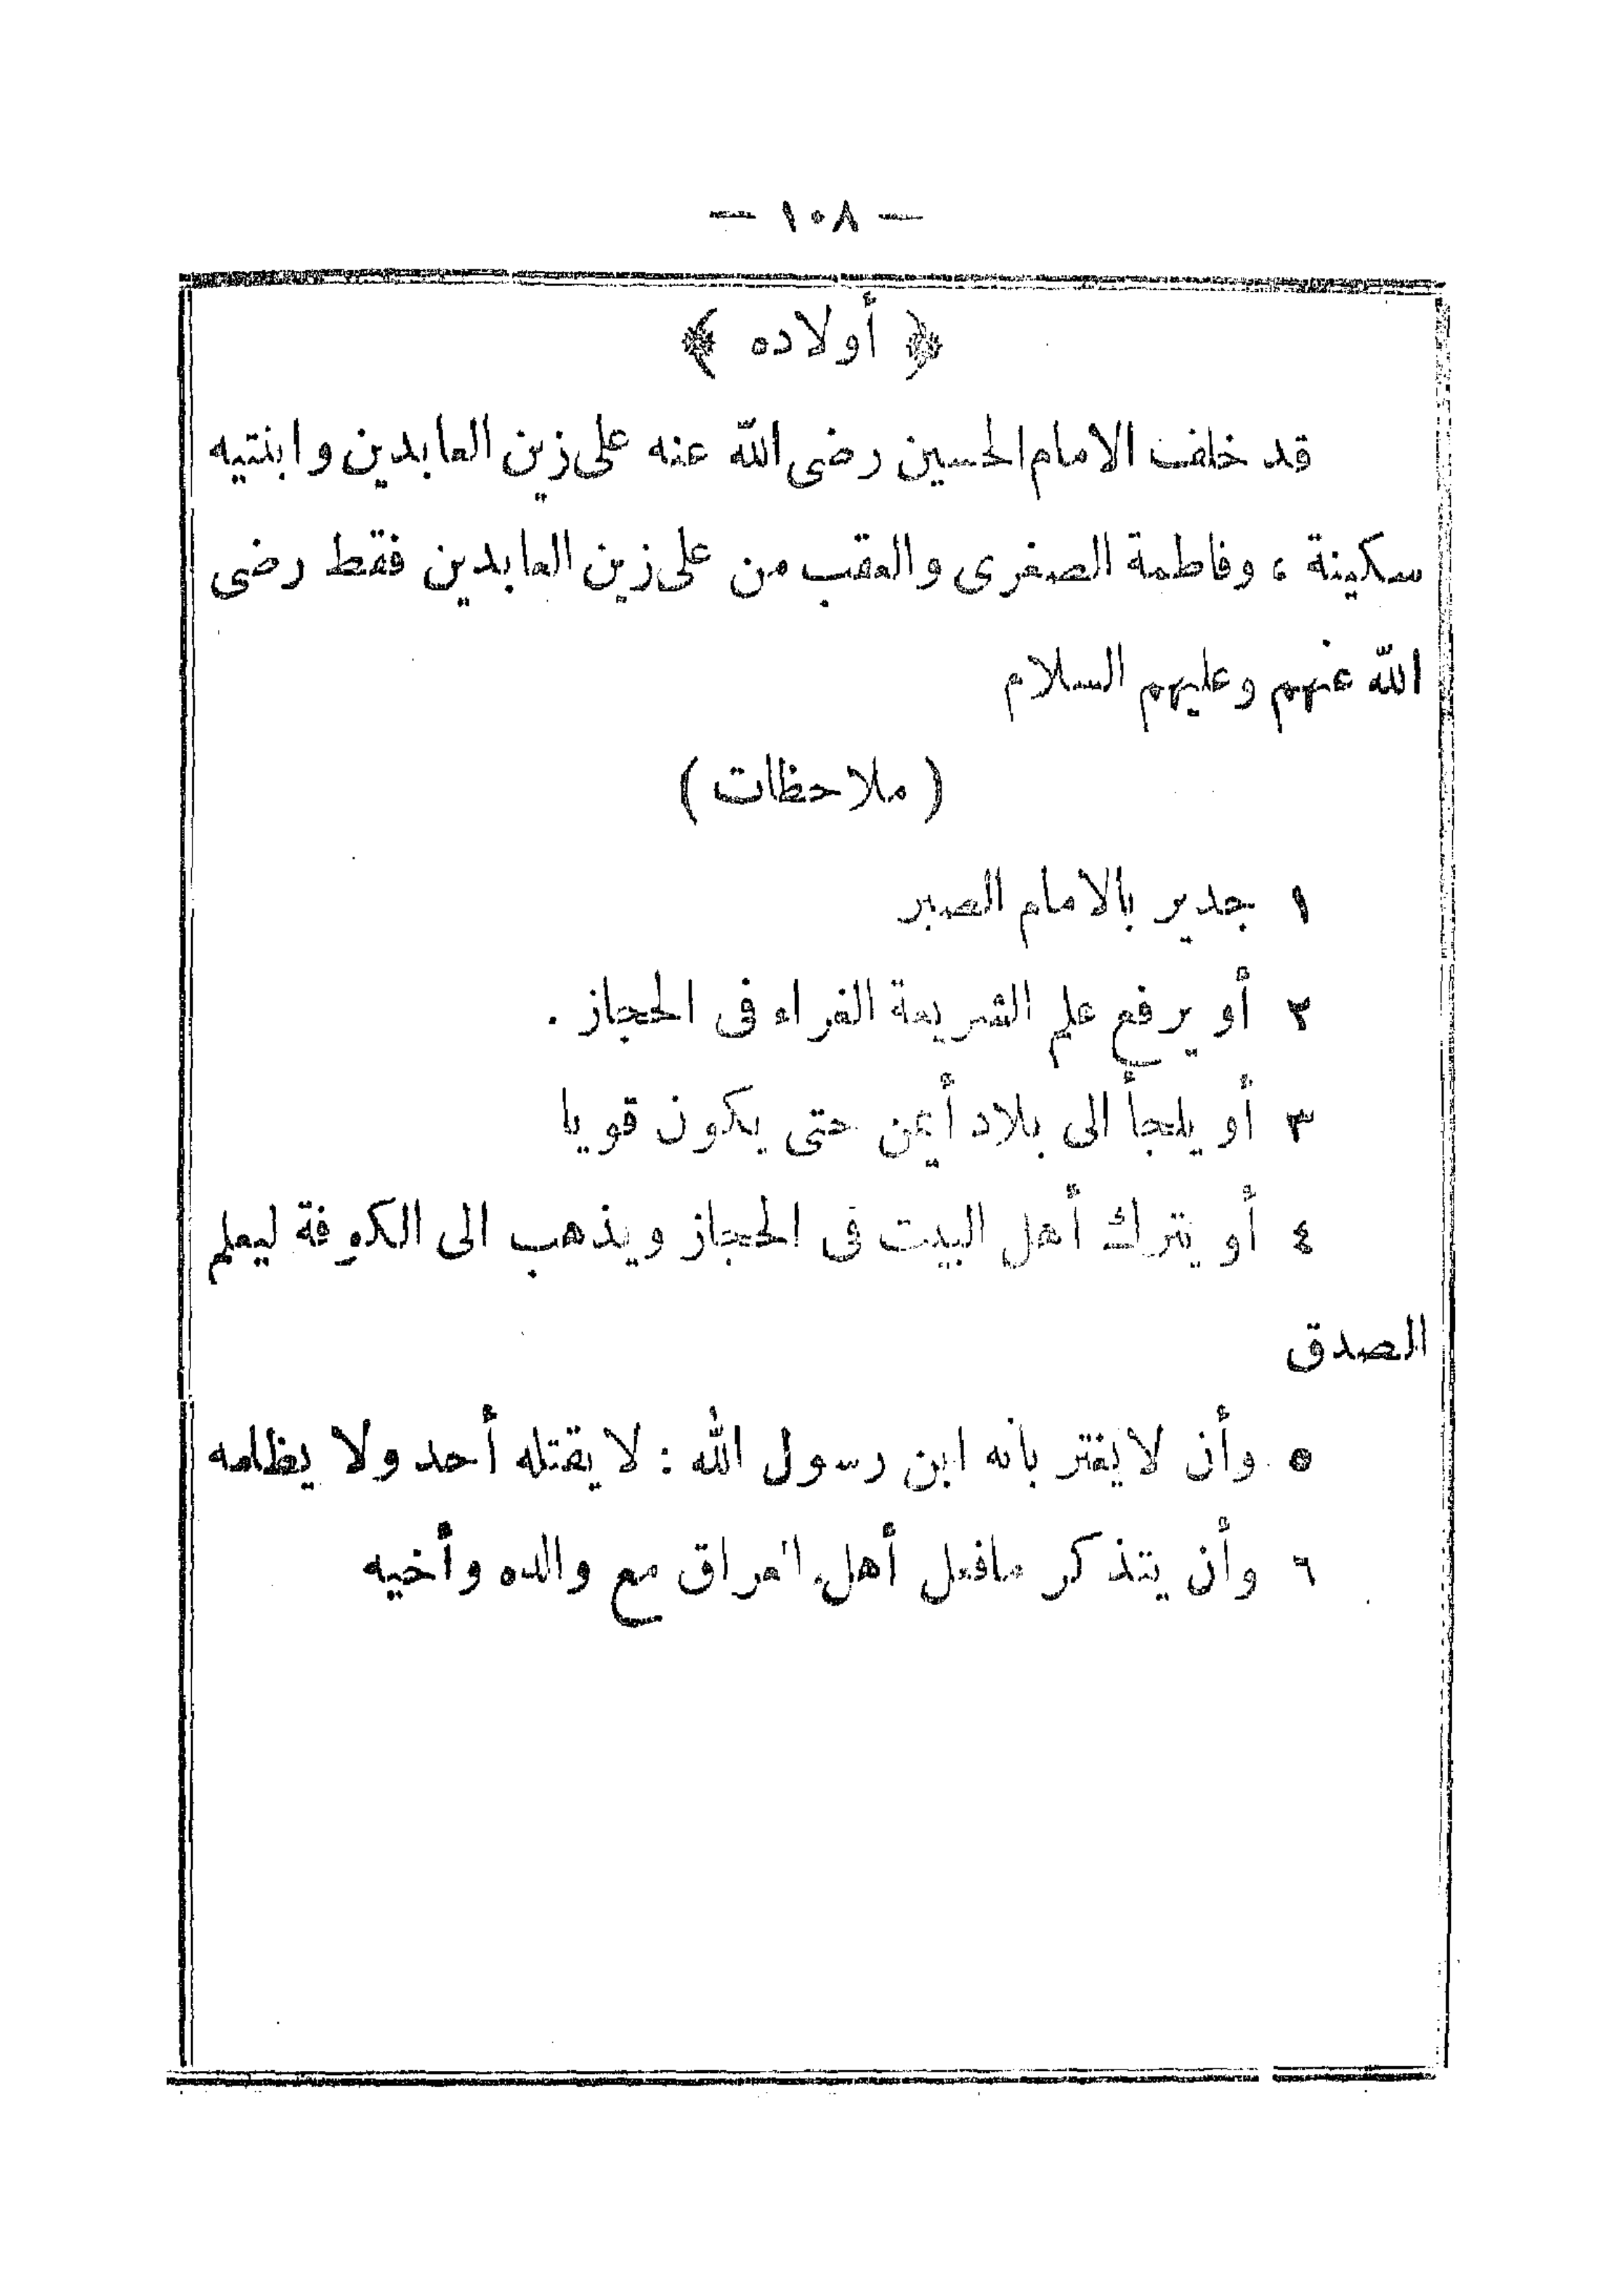 — ١٠٨ —
﴿ أولاده ﴾
قد خلف الامام الحسين رضى الله عنه على زين العابدين وابنتيه
سكينة ، وفاطمة الصغرى والعقب من على زين العابدين فقط رضى
الله عنهم وعليهم السلام
( ملاحظات )
١ جدير بالامام الصبر
٢ أو يرفع علم الشريعة الغراء فى الحجاز .
٣ أو يلجأ الى بلاد أيمن حتى يكون قويا
٤ أو يترك أهل البيت فى الحجاز ويذهب الى الكوفة ليعلم
الصدق
٥ وأن لا يغتر بانه ابن رسول الله : لا يقتله أحد ولا يظلمه
٦ وأن يتذكر مافعل أهل العراق مع والده وأخيه